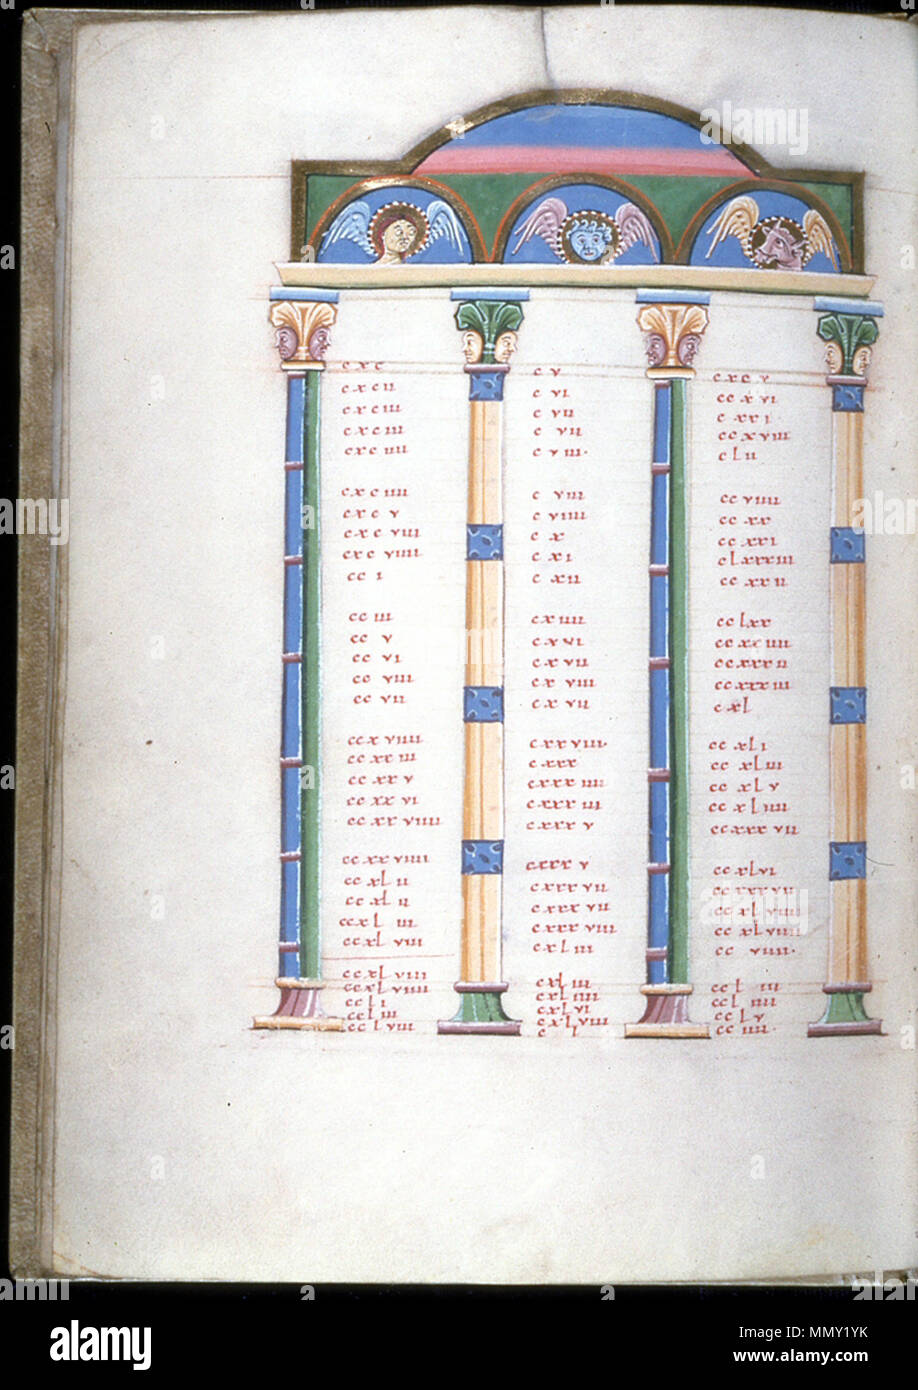 c x c
c x c ii
c x c iii
c x c iii
cxc iiii
c x c iiii
c x c v
c x c viii
cxc viiii
cc i
cc iii
cc v
cc vi
cc viii
cc vii
ccx viiii
cc xx iii
cc xx v
cc xx vi
cc xx viiii
cc xx viiii
cc xl ii
cc xl ii
ccxl iii
cc xl viii
cc xl viii
cc xl viiii
cc l i
cc l iii
cc l viii
c v
c vi
c vii
c vii
c v iii·
c viii
c viiii
c x
c xi
c xii
c x iiii
c x vi
c x vii
c x viii
c x vii
c xx viiii·
c xxx
c xxx iiii
c xxx iii
c xxx v
c xxx v
c xxx vii
c xxx vii
c xxx viiii
c x l iii
c xl iii
c xl iiii
c xl vi
c x l viiii
c l
c x c v
cc x vi
c xx i·
cc x viii
c l ii
cc viiii
cc xx
cc xx i
c l xxx iii
cc xx ii
cc l xx
cc xx iiii
cc xxx ii
cc xxx iii
c xl
cc xl i
cc xl iii
cc xl v
cc xl iiii
cc xxx vii
cc xl vi
cc xxx vii
cc xl viiii
cc xl viiii
cc viiii·
cc l iii
cc l iiii
cc l v
cc iiii·
alamy
Image ID: MMY1YK
www.alamy.com